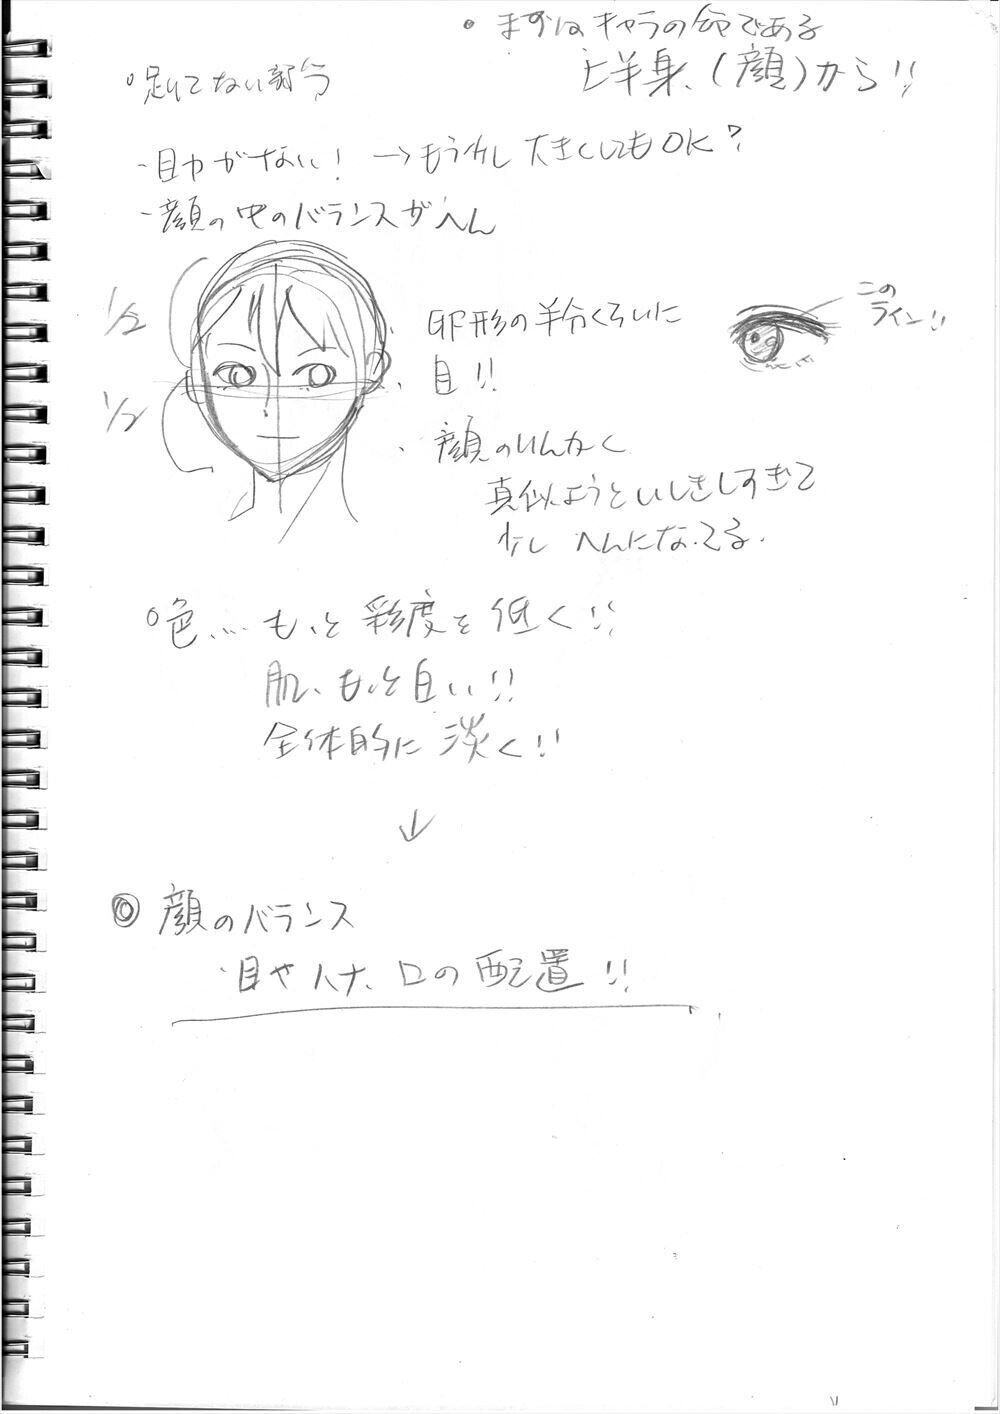 ・まずはキャラの命である
上半身、(顔)から!!
°足りてない部分
・目力がない! →もう少し大きくしてもOK?
・顔の中のバランスがへん
1/2
1/2
このライン!!
卵形の半分くらいに
目!!
・顔のりんかく
真似ようといしきしすぎて
少し へんになってる.
°色…. もっと彩度を低く!!
肌、もっと白い!!
全体的に淡く!!
↓
◎ 顔のバランス
・目やハナ、口の配置!!